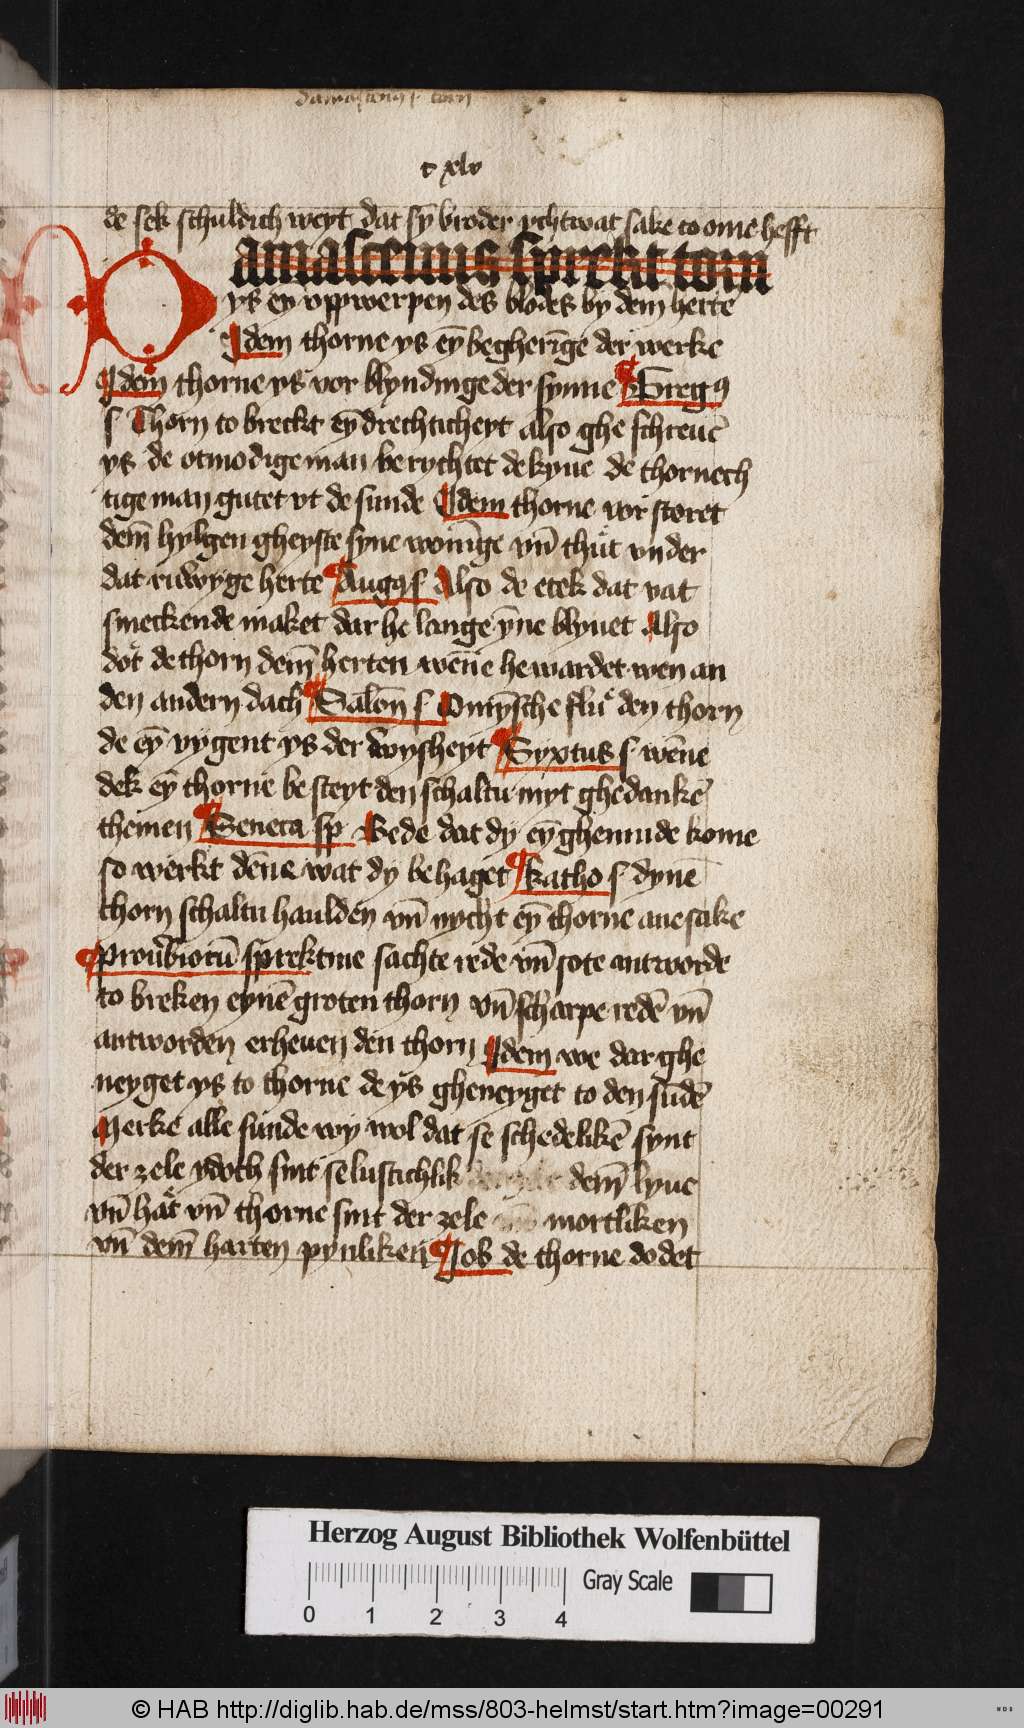 damascenus s torn
c xlv
de sek schuldich weyt dat sȳ broder ychtwat sake to ome hefft
Damascenus sprekt torn
ys ey vppwerpen des blodes by dem herte
Idem thorne ys eȳ begherīge der werke
Idem thorne ys vor blyndinge der synne Gregꝰ
s Thorn to breckt eȳdrechticheyt also ghe schreuē
ys de otmodige man berychtet de kyue de thornech
tige man gutet vt de sunde Idem thorne vor storet
dem̄ hylgen gheyste syne wonīge vn̄ thut vnder
dat ruwyge herte Augꝰ s Also de etek dat vat
smeckende maket dar he lange ȳne blyuet Also
dot de thorn dem̄ herten wēne he wardet wen an
den andern dach Salon̄ s Omȳsche flu den thorn
de eȳ vygent ys der wysheyt Syxtus s wēne
dek eȳ thorne be steyt den schaltu myt ghedankē
themen Seneca sp Bede dat dy eȳ ghemude kome
so werkt dēne wat dy behaget katho s dynē
thorn schaltu haulden vn̄ nycht eȳ thorne aue sake
Prouerbiorū sprekt me sachte rede vn̄ sote antworde
to breken eynē groten thorn vn̄ scharpe redē vn̄
antworden erheuen den thorn Idem we dar ghe
neyget ys to thorne de ys gheneyget to den sūdē
Merke alle sunde wy wol dat se schedelikē synt
der zele ydoch sint se lustichlik dem̄ lyue
vn̄ hat vn̄ thorne sint der zele mortliken
vn̄ dem̄ harten pynliken Job de thorne dodet
Herzog August Bibliothek Wolfenbüttel
Gray Scale
0 1 2 3 4
© HAB http://diglib.hab.de/mss/803-helmst/start.htm?image=00291